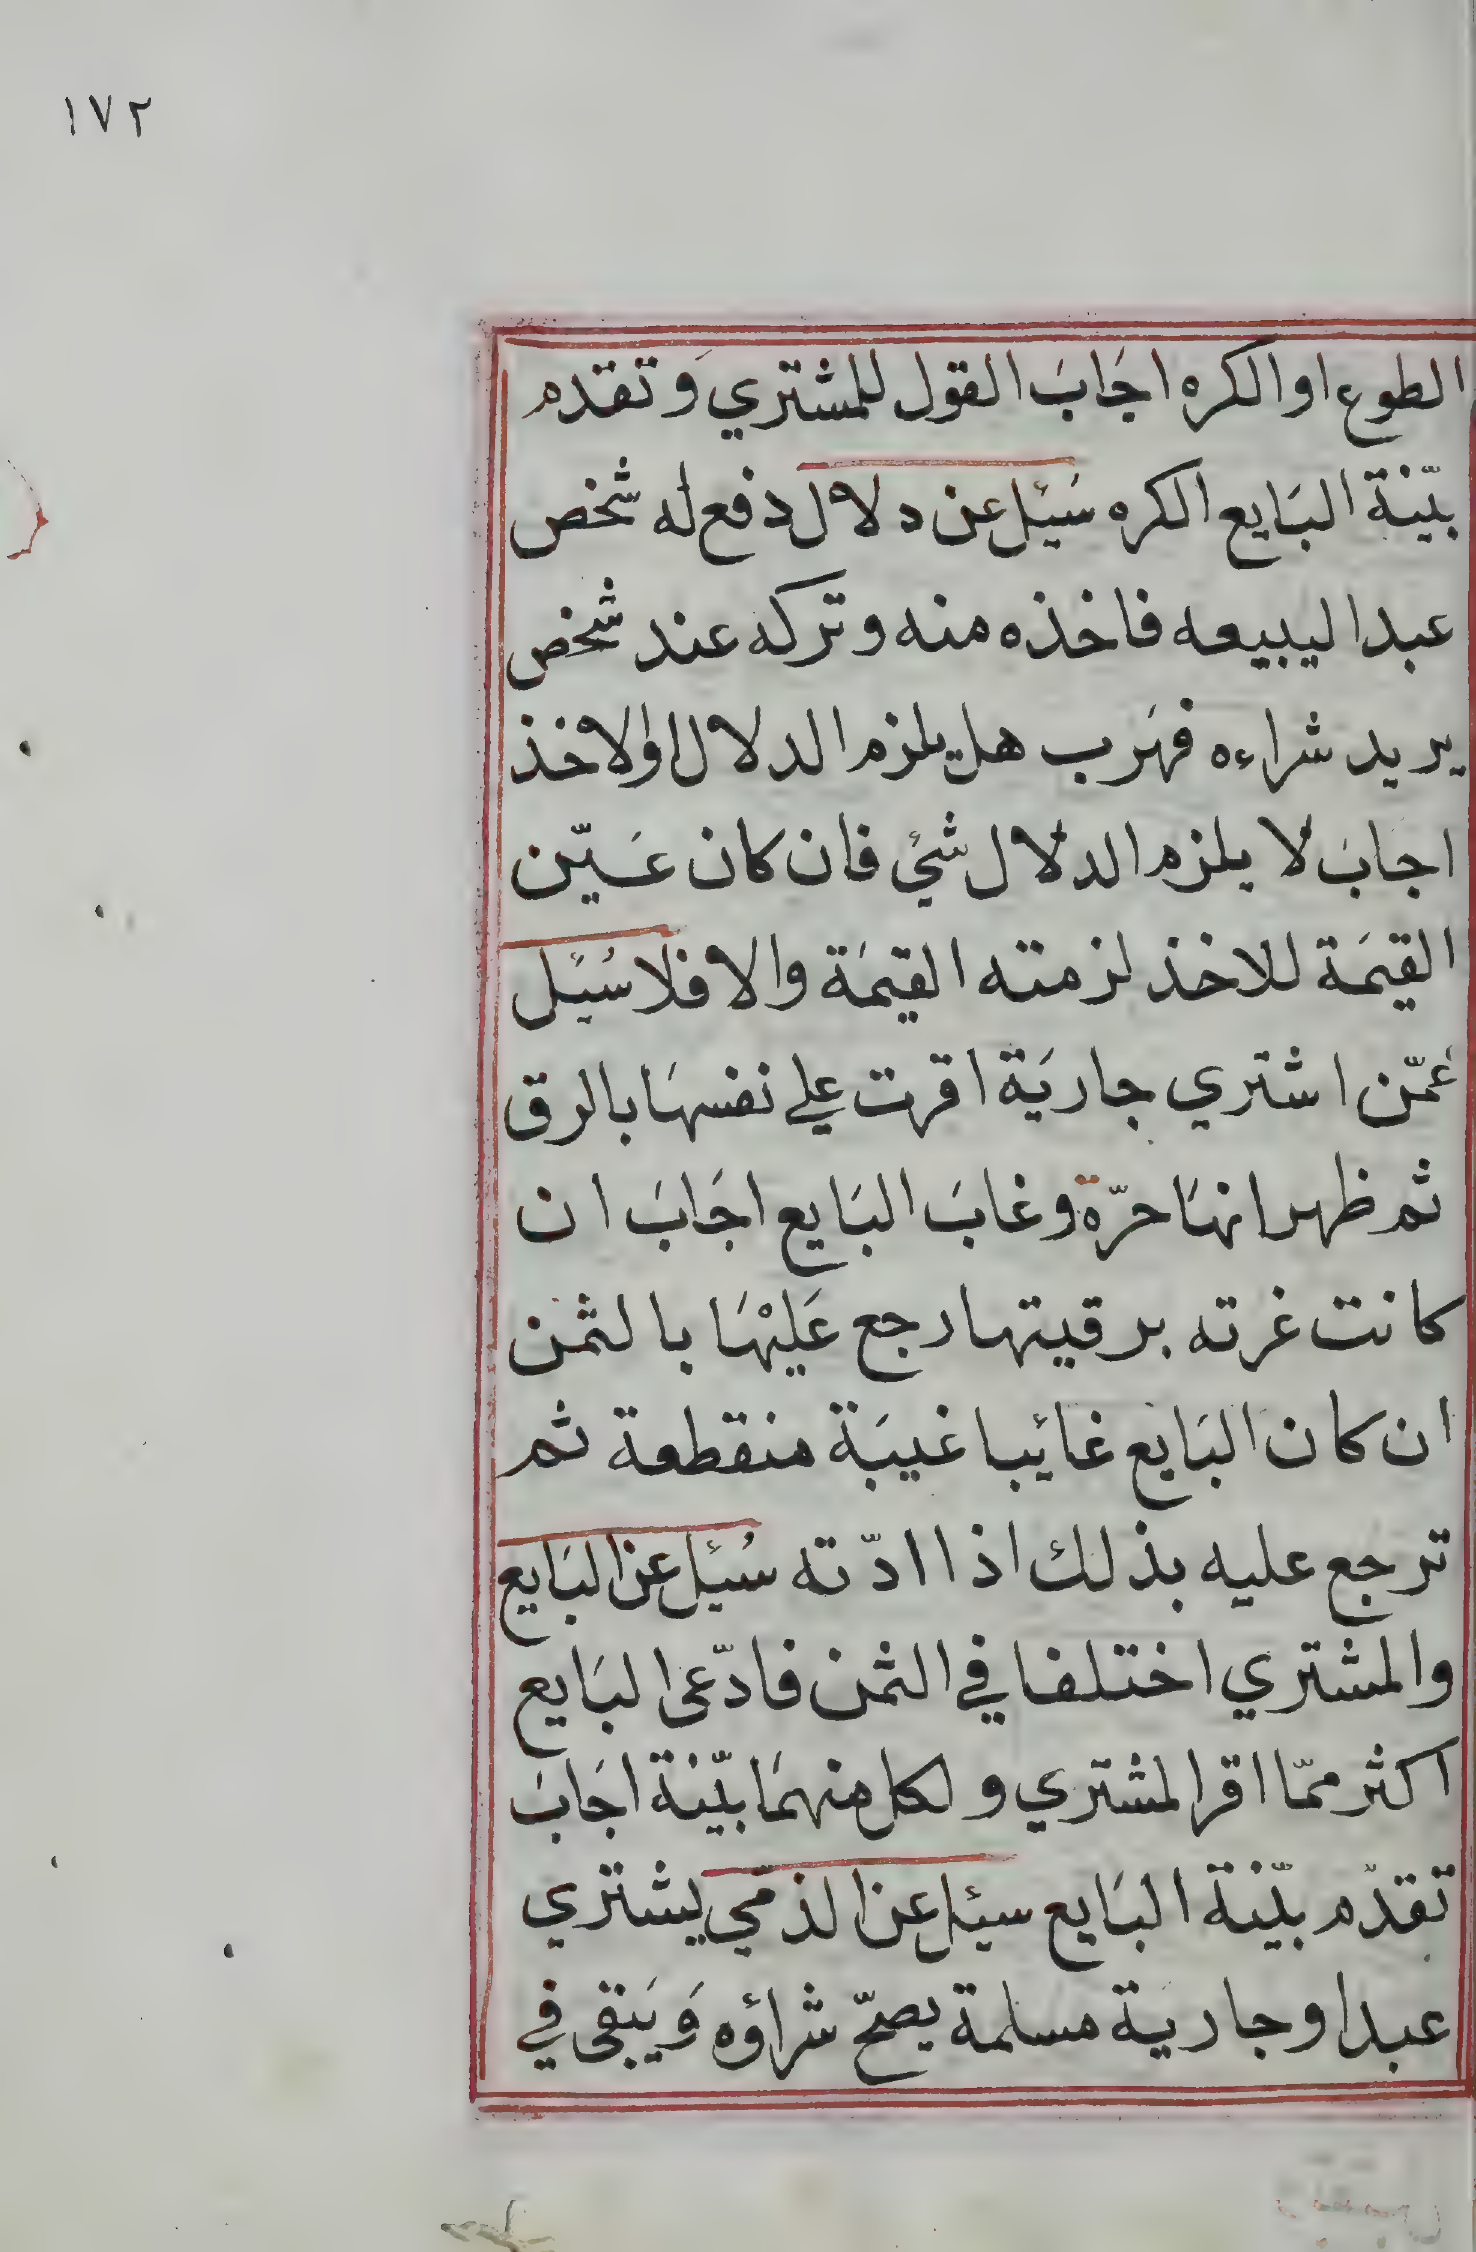 ١٧٢
الطوع او الكره اجَابَ القول للمشتري وَتقدم
بيّنة البَايع الكره سُئِل عن دلال دفع له شخص
عبدا ليبيعه فاخذه منه وتركه عند شخص
يريد شراءه فهَرب هل يلزم الدلال اوالاخذ
اجابَ لا يلزم الدلال شئ فان كان عَيّن
القيمَة للاخذ لزمته القيمَة والا فلا سُئِل
عمّن اشتري جاريَة اقرت علي نفسهَا بالرق
ثم ظهر انهَا حرّة وغابَ البَايع اجَابَ ان
كانت غرته برقيتها رجع عَليْهَا بالثمن
ان كان البَايع غائبا غيبَة منقطعة ثم
ترجع عليه بذلك اذا ادّته سُئِل عن البَايع
والمشتري اختلفا في الثمن فادّعى البَايع
اكثر ممّا اقر المشتري ولكل منهمَا بيّنة اجَابَ
تقدّم بيّنة البَايع سئل عن الذمّي يشتري
عبدا وجارية مسلمة يصحّ شراؤه وَيَبقى في